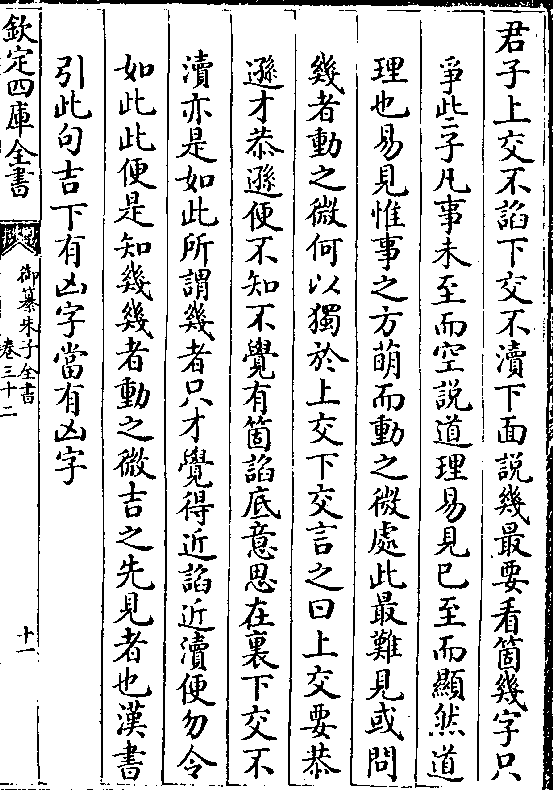 君子上交不諂下交不瀆下面説幾最要看箇幾字只
爭此二子凡事未至而空説道理易見已至而顯然道
理也易見惟事之方萌而動之微處此最難見或問
幾者動之微何以獨於上交下交言之曰上交要恭
遜才恭遜便不知不覺有箇諂底意思在裏下交不
瀆亦是如此所謂幾者只才覺得近諂近瀆便勿令
如此此便是知幾幾者動之微吉之先見者也漢書
引此句吉下有凶字當有凶字
欽定四庫全書
御纂朱子全書
卷三十二
十一